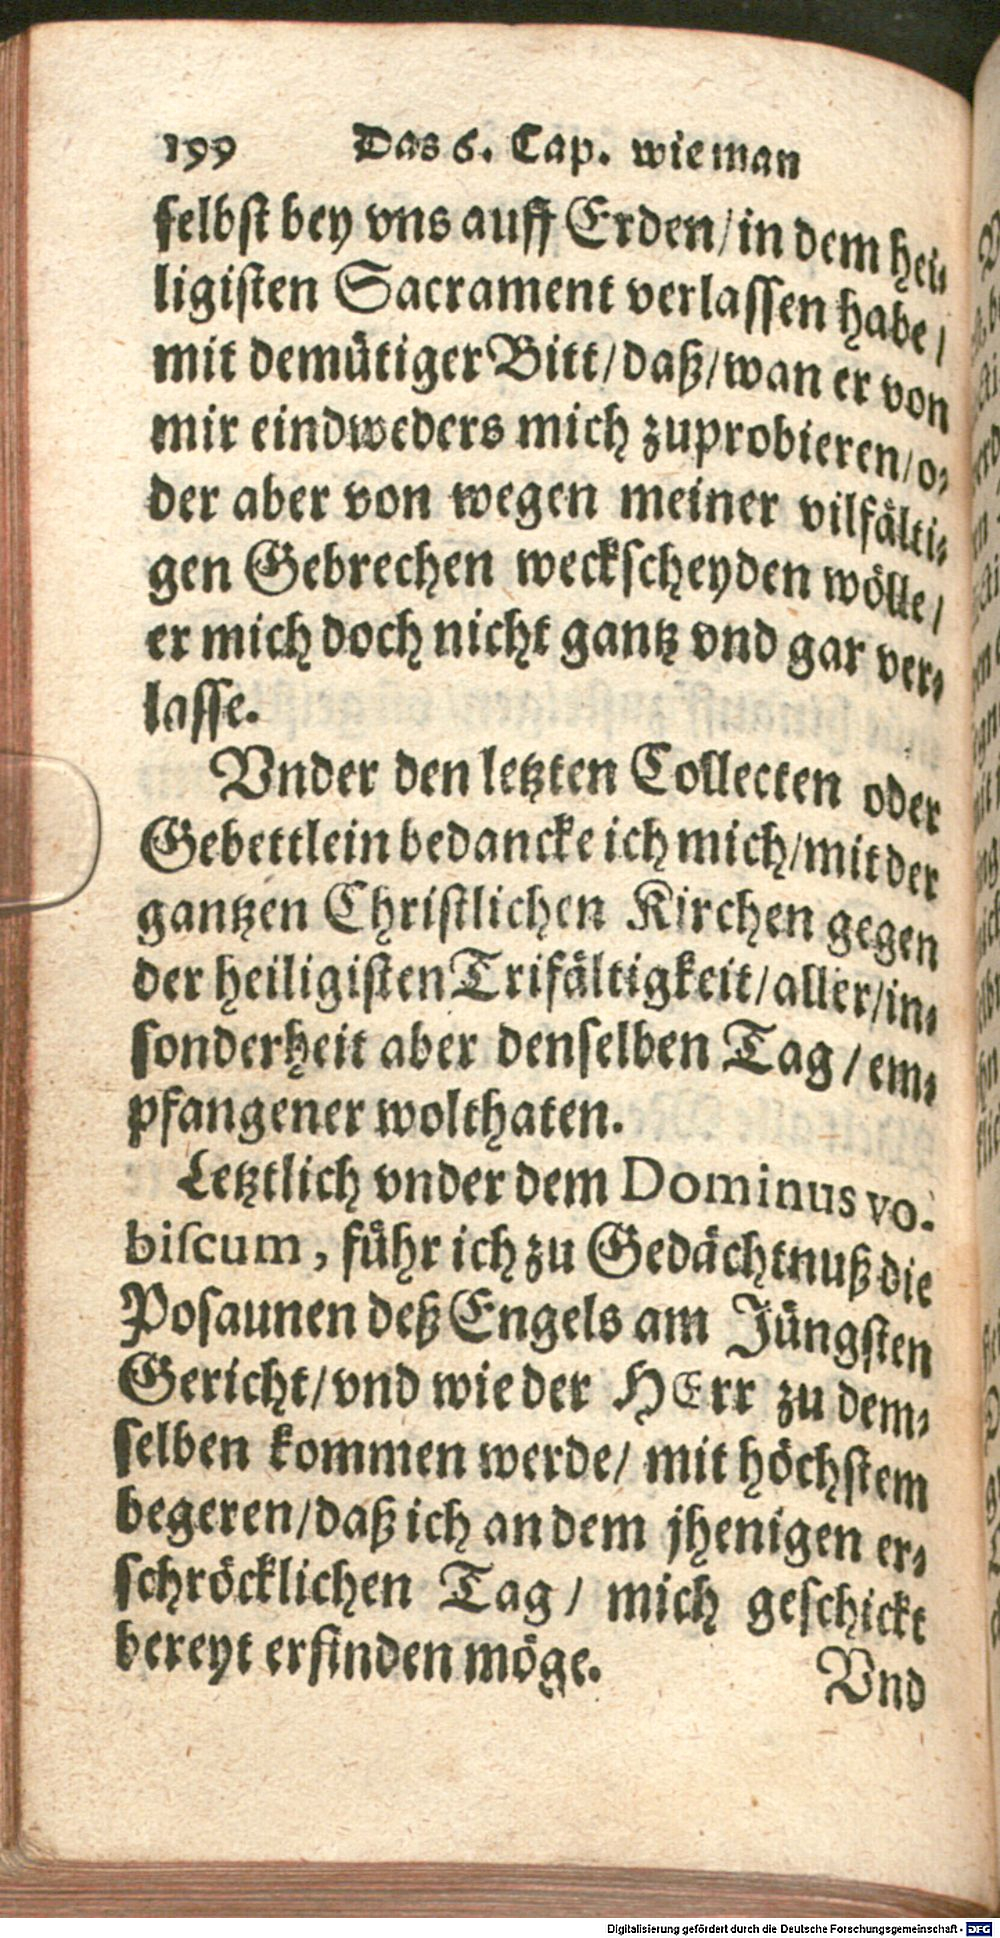 199 Das 6. Cap. wie man
selbst bey vns auff Erden/in dem hei⸗
ligisten Sacrament verlassen habe/
mit demütiger Bitt/daß/wan er von
mir eindweders mich zuprobieren/o⸗
der aber von wegen meiner vilfälti⸗
gen Gebrechen weckscheyden wölle/
er mich doch nicht gantz vnd gar ver⸗
lasse.
Vnder den letzten Collecten oder
Gebettlein bedancke ich mich/mit der
gantzen Christlichen Kirchen gegen
der heiligisten Trifältigkeit/aller/in⸗
sonderheit aber denselben Tag/em⸗
pfangener wolthaten.
Letztlich vnder dem Dominus vo-
biscum, führ ich zu Gedächtnuß die
Posaunen deß Engels am Jüngsten
Gericht/vnd wie der HErr zu dem⸗
selben kommen werde/ mit höchstem
begeren/daß ich an dem jhenigen er⸗
schröcklichen Tag/ mich geschickt
bereyt erfinden möge.
Vnd
Digitalisierung gefördert durch die Deutsche Forschungsgemeinschaft - DFG